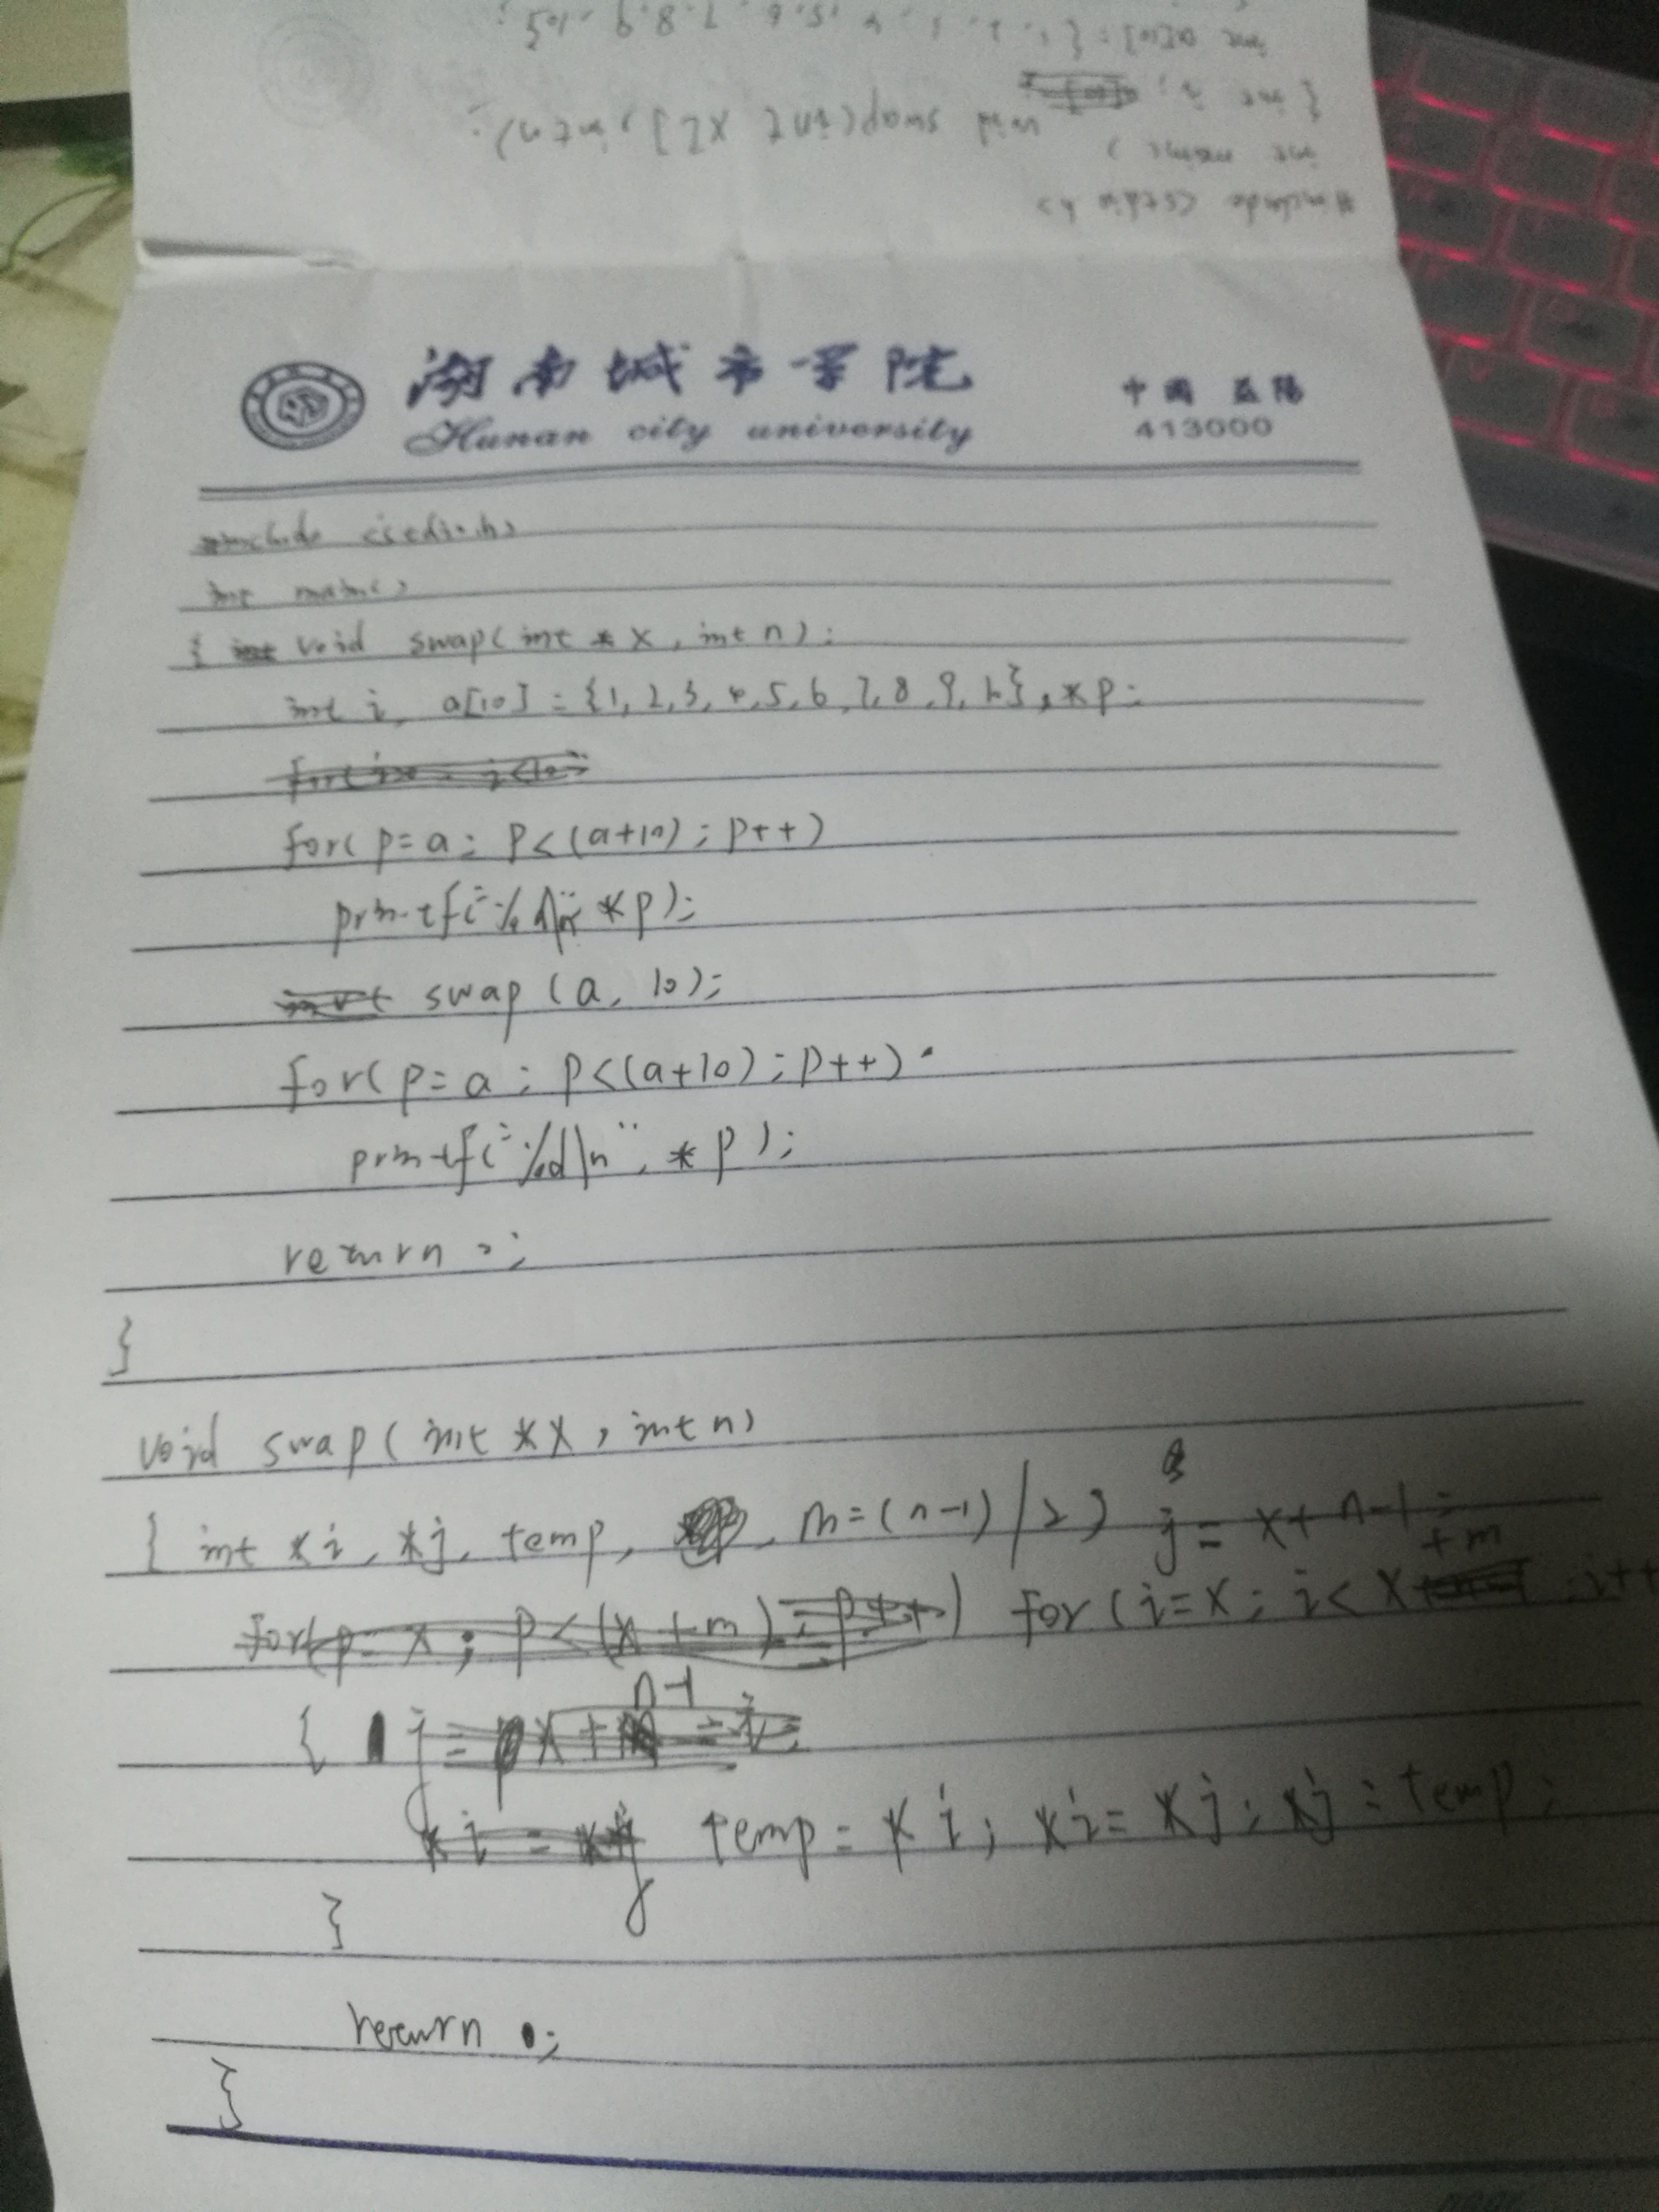 int a[10] = {1, 2, 3, 4, 5, 6, 7, 8, 9, 10};
{ int i;
void swap(int x[], int n);
int main()
#include <stdio.h>
湖南城市学院
Hunan city university
中国 益阳
413000
#include <stdio.h>
int main()
{ void swap(int *x, int n);
int i, a[10] = {1, 2, 3, 4, 5, 6, 7, 8, 9, 10}, *p;
for(p=a; p<(a+10); p++)
printf("%d\n", *p);
swap (a, 10);
for(p=a; p<(a+10); p++)
printf("%d\n", *p);
return 0;
}
void swap(int *x, int n)
{ int *i, *j, temp, m=(n-1)/2; j = x+n-1;
for(p=x; p<(x+m); p++) for(i=x; i<x+m; i++
{ j = x+n-1-i;
*i = *j temp = *i; *i = *j; *j = temp;
}
return ;
}